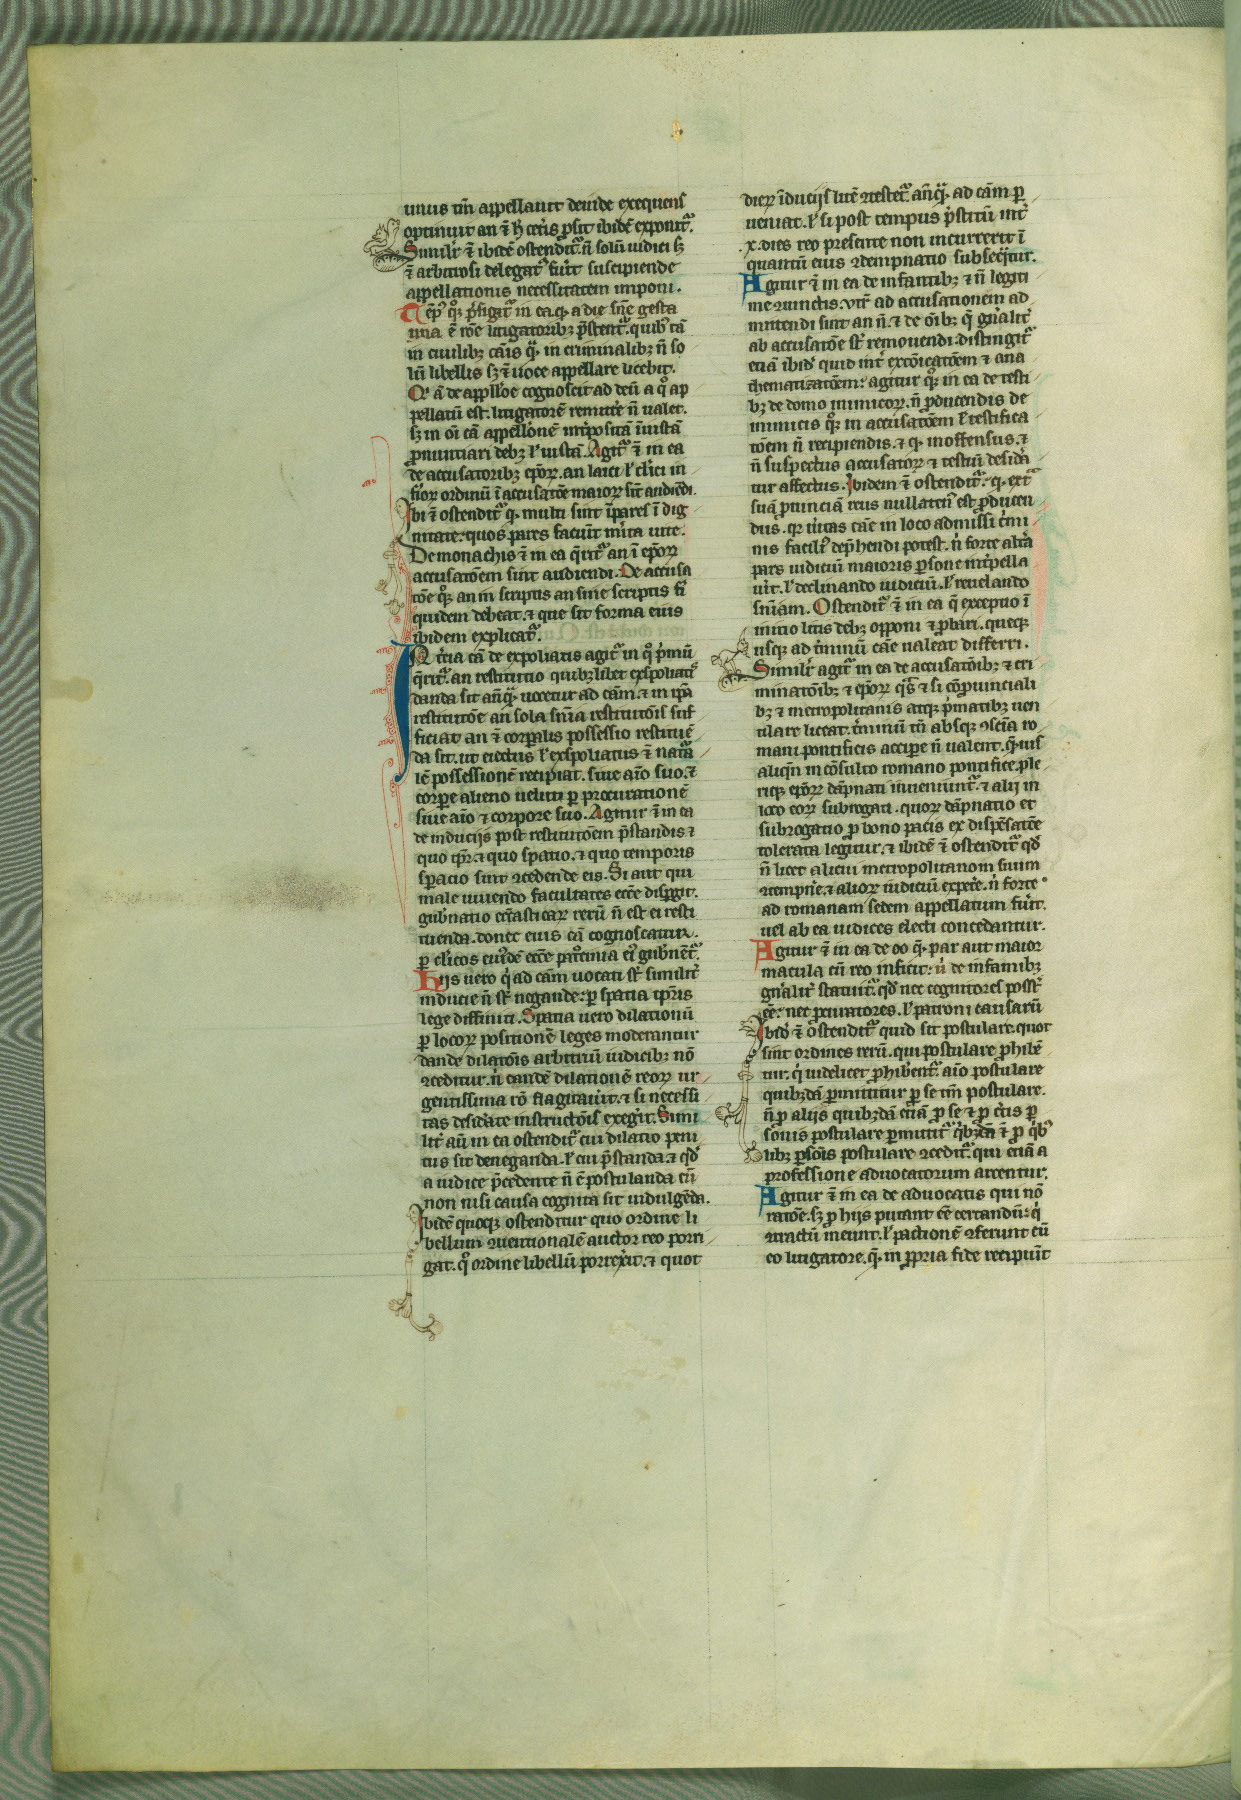 unus tm̄ appellauit deinde exequens
optinuit an ⁊ h̄ cet̄is ꝓsit ibidē exponit̄.
Similr̄ ⁊ ibidē ostendit̄ n̄ solū iudici sꝫ
⁊ arbit̄osi delegat̄ fūit suscipiende
appellationis necessitatem imponi.
Tēpꝰ qͦꝫ p̄figit̄ in ea. ꝙ a die sn̄e gesta
una ē rōe litigatoribꝫ p̄stent̄. quibꝰ tā
in ciuilibꝫ cāis qͣ̄. in criminalibꝫ n̄ so
lū libellis sꝫ ⁊ uoce appellare licebit.
Qͥ ā de appllōe cognoscit ad deū a qͦ ap
pellatū est. litigatorē remittē n̄ ualet.
sꝫ in oī cā appellōnē int̄positā iniustā
ꝓnuntiari debꝫ ł iustā. Agit̄ ⁊ in ea
de accusatoribꝫ ep̄oꝝ. an laici ł cl̄ici in
fioꝝ ordinū ī accusatōe maioꝝ sīt audiēdi.
Ibi ⁊ ostendit̄ ꝙ multi sint īpares ī dig
nitate. quos pares faciūt mīta uite.
De monachis ⁊ in ea q̄rit̄ an ī ep̄oꝝ
accusatōem sint audiendi. De accusa
tōe qͦꝫ an in scriptis an sine scriptis fī
quidem debeat. ⁊ que sit forma eius
ibidem explicat̄.
In t̄cia cā de expoliatis agit̄ in qͦ pͥmū
q̄rit̄. an restitutio quibꝫlibet exspoliatis
danda sit an̄qͣ̄. uocetur ad cām. ⁊ in ip̄a
restitutōe an sola sn̄ia restitutōis suf
ficiat an ⁊ corꝑalis possessio restituē
da sit. ut eiectus ł exspoliatus ⁊ natͣa
lē possessionē recipiat. siue aīo suo. ⁊
corꝑe alieno ueluti ꝑ procurationē
siue aīo ⁊ corpore suo. Agitur ⁊ in ea
de induciis post restitutōem p̄standis ⁊
quo tꝑr̄. ⁊ quo spatio. ⁊ quo temporis
spacio sint ꝯcedende eis. Si aut qui
male uiuendo facultates ecc̄e disꝑgit.
gub̄natio ecc̄iasticaꝝ rerū n̄ est ei resti
tuenda. donec eius cā cognoscatur.
ꝑ cl̄icos eiusdē ecc̄e pat̄monia eiꝰ gub̄nēt̄.
Hiis uero qͥ ad cām uocati sūt similit̄
inducie n̄ sūt negande. ꝑ spatia tꝑris
lege diffiniti. Spatia uero dilationū
ꝑ locoꝝ positionē leges moderantur
dande dilatōis arbitriū iudicibꝫ nō
ꝯceditur. nͥ eandē dilationē reoꝝ ur
gentissima rō flagitauit. ⁊ si necessi
tas desidate instructōis exegit. Simi
lit̄ aū in ea ostendit̄ cui dilatio peni
tus sit deneganda. ł cui p̄standa. ⁊ qd̄
a iudice p̄cedente n̄ ē postulanda cū
non nisi causa cognita sit indulgēda.
Ibidē quoqꝫ ostenditur quo ordine li
bellum ꝯuentionalē auctor reo porri
gat. qͦ ordine libellū porrexit. ⁊ quot
dieꝝ īduciis litē ꝯtestet̄ an̄qͣ̄. ad cām ꝑ
ueniat. ł si post tempus p̄stitū int̄
.x. dies reo presente non incurrerit ī
quantū eius ꝯdempnatio subseqͥtur.
Agitur ⁊ in ea de infantibꝫ ⁊ n̄ legiti
me ꝯiunctis. ut̄ ad accusationem ad
mittendi sint an n̄. ⁊ de oībꝫ q̄ gn̄alit̄
ab accusatōe sūt remouendi. distingit̄
etiā ibidē quid int̄ excōicatōem ⁊ ana
thematizatōem. agitur qͦꝫ in ea de testi
bꝫ de domo inimicoꝝ. n̄ ꝓducendis de
inimicis qͦꝫ in accusatōem ł testifica
tōem n̄ recipiendis. ⁊ ꝙ inoffensus. ⁊
n̄ suspectus accusatoꝝ ⁊ testiū desidā
tur affectus. Ibidem ⁊ ostendit̄. ꝙ ext̄
suā ꝓuinciā reus nullatenꝰ est ꝓducen
dus. qꝛ ūitas cāe in loco admissi cīmi
nis facilꝰ dep̄hendi potest. nͥ forte altā
pars iudiciū maioris ꝑsone int̄pella
uīt. ł declinando iudiciū. ł reuelando
sn̄iam. Ostendit̄ ⁊ in ea q̄ exceptio ī
initio litis debꝫ opponi ⁊ ꝓbari. queqꝫ
usqꝫ ad t̄minū cāe ualeat differri.
Similr̄ agit̄ in ea de accusatōibꝫ ⁊ cri
minatōibꝫ ⁊ ep̄oꝝ q̄s ⁊ si cōꝓuinciali
bꝫ ⁊ metropolitanis atqꝫ p̄matibꝫ uen
tilare liceat. t̄minū tn̄ absqꝫ ꝯsciā ro
mani pontificis accipe n̄ ualent. qͣ̄uis
aliqn̄ incōsulto romano pontifice. ple
riqꝫ ep̄oꝝ dāpnati inueniunt̄. ⁊ alij in
loco eoꝝ subrogati. quoꝝ dāpnatio et
subrogatio ꝓ bono pacis ex dispēsatōe
tolerata legitur. ⁊ ibidē ⁊ ostendit̄ qd̄
n̄ licet alicui metropolitanom suum
ꝯtempn̄e. ⁊ alioꝝ iudiciū expete. nͥ forte
ad romanam sedem appellatum fūit.
uel ab ea iudices electi concedantur.
Agitur ⁊ in ea de eo qͣ̄. par aut maior
macula cū reo inficit. n̄ de infamibꝫ
gn̄alit̄ statuit̄. qd̄ nec cognitores possūt
eē. nec ꝓcuratores. ł patroni causarū
Ibid̄ ⁊ ostendit̄ quid sit postulare. quot
sint ordines rerū. qui postulare ꝓhibē
tur. qͥ uidelicet ꝓhibent̄. aīo postulare
quibꝫdā ꝑmittitur ꝓ se tm̄ postulare.
n̄ ꝓ aliis quibꝫdā etiā ꝓ se ⁊ ꝓ cͥtis ꝑ
sonis postulare ꝑmittit̄ qͥbꝫdā ⁊ ꝓ qͥbꝰ
libꝫ ꝑsōis postulare ꝯcedit̄. qui etiā a
professione aduocatorum arcentur.
Agitur ⁊ in ea de aduocatis qui nō
ratōe. sꝫ ꝓ hijs putant eē certandū. qͥ
ꝯtractū ineunt. ł pactionē ꝯferunt cū
eo litigatore. qͣ̄. in ꝓpria fide recipiūt